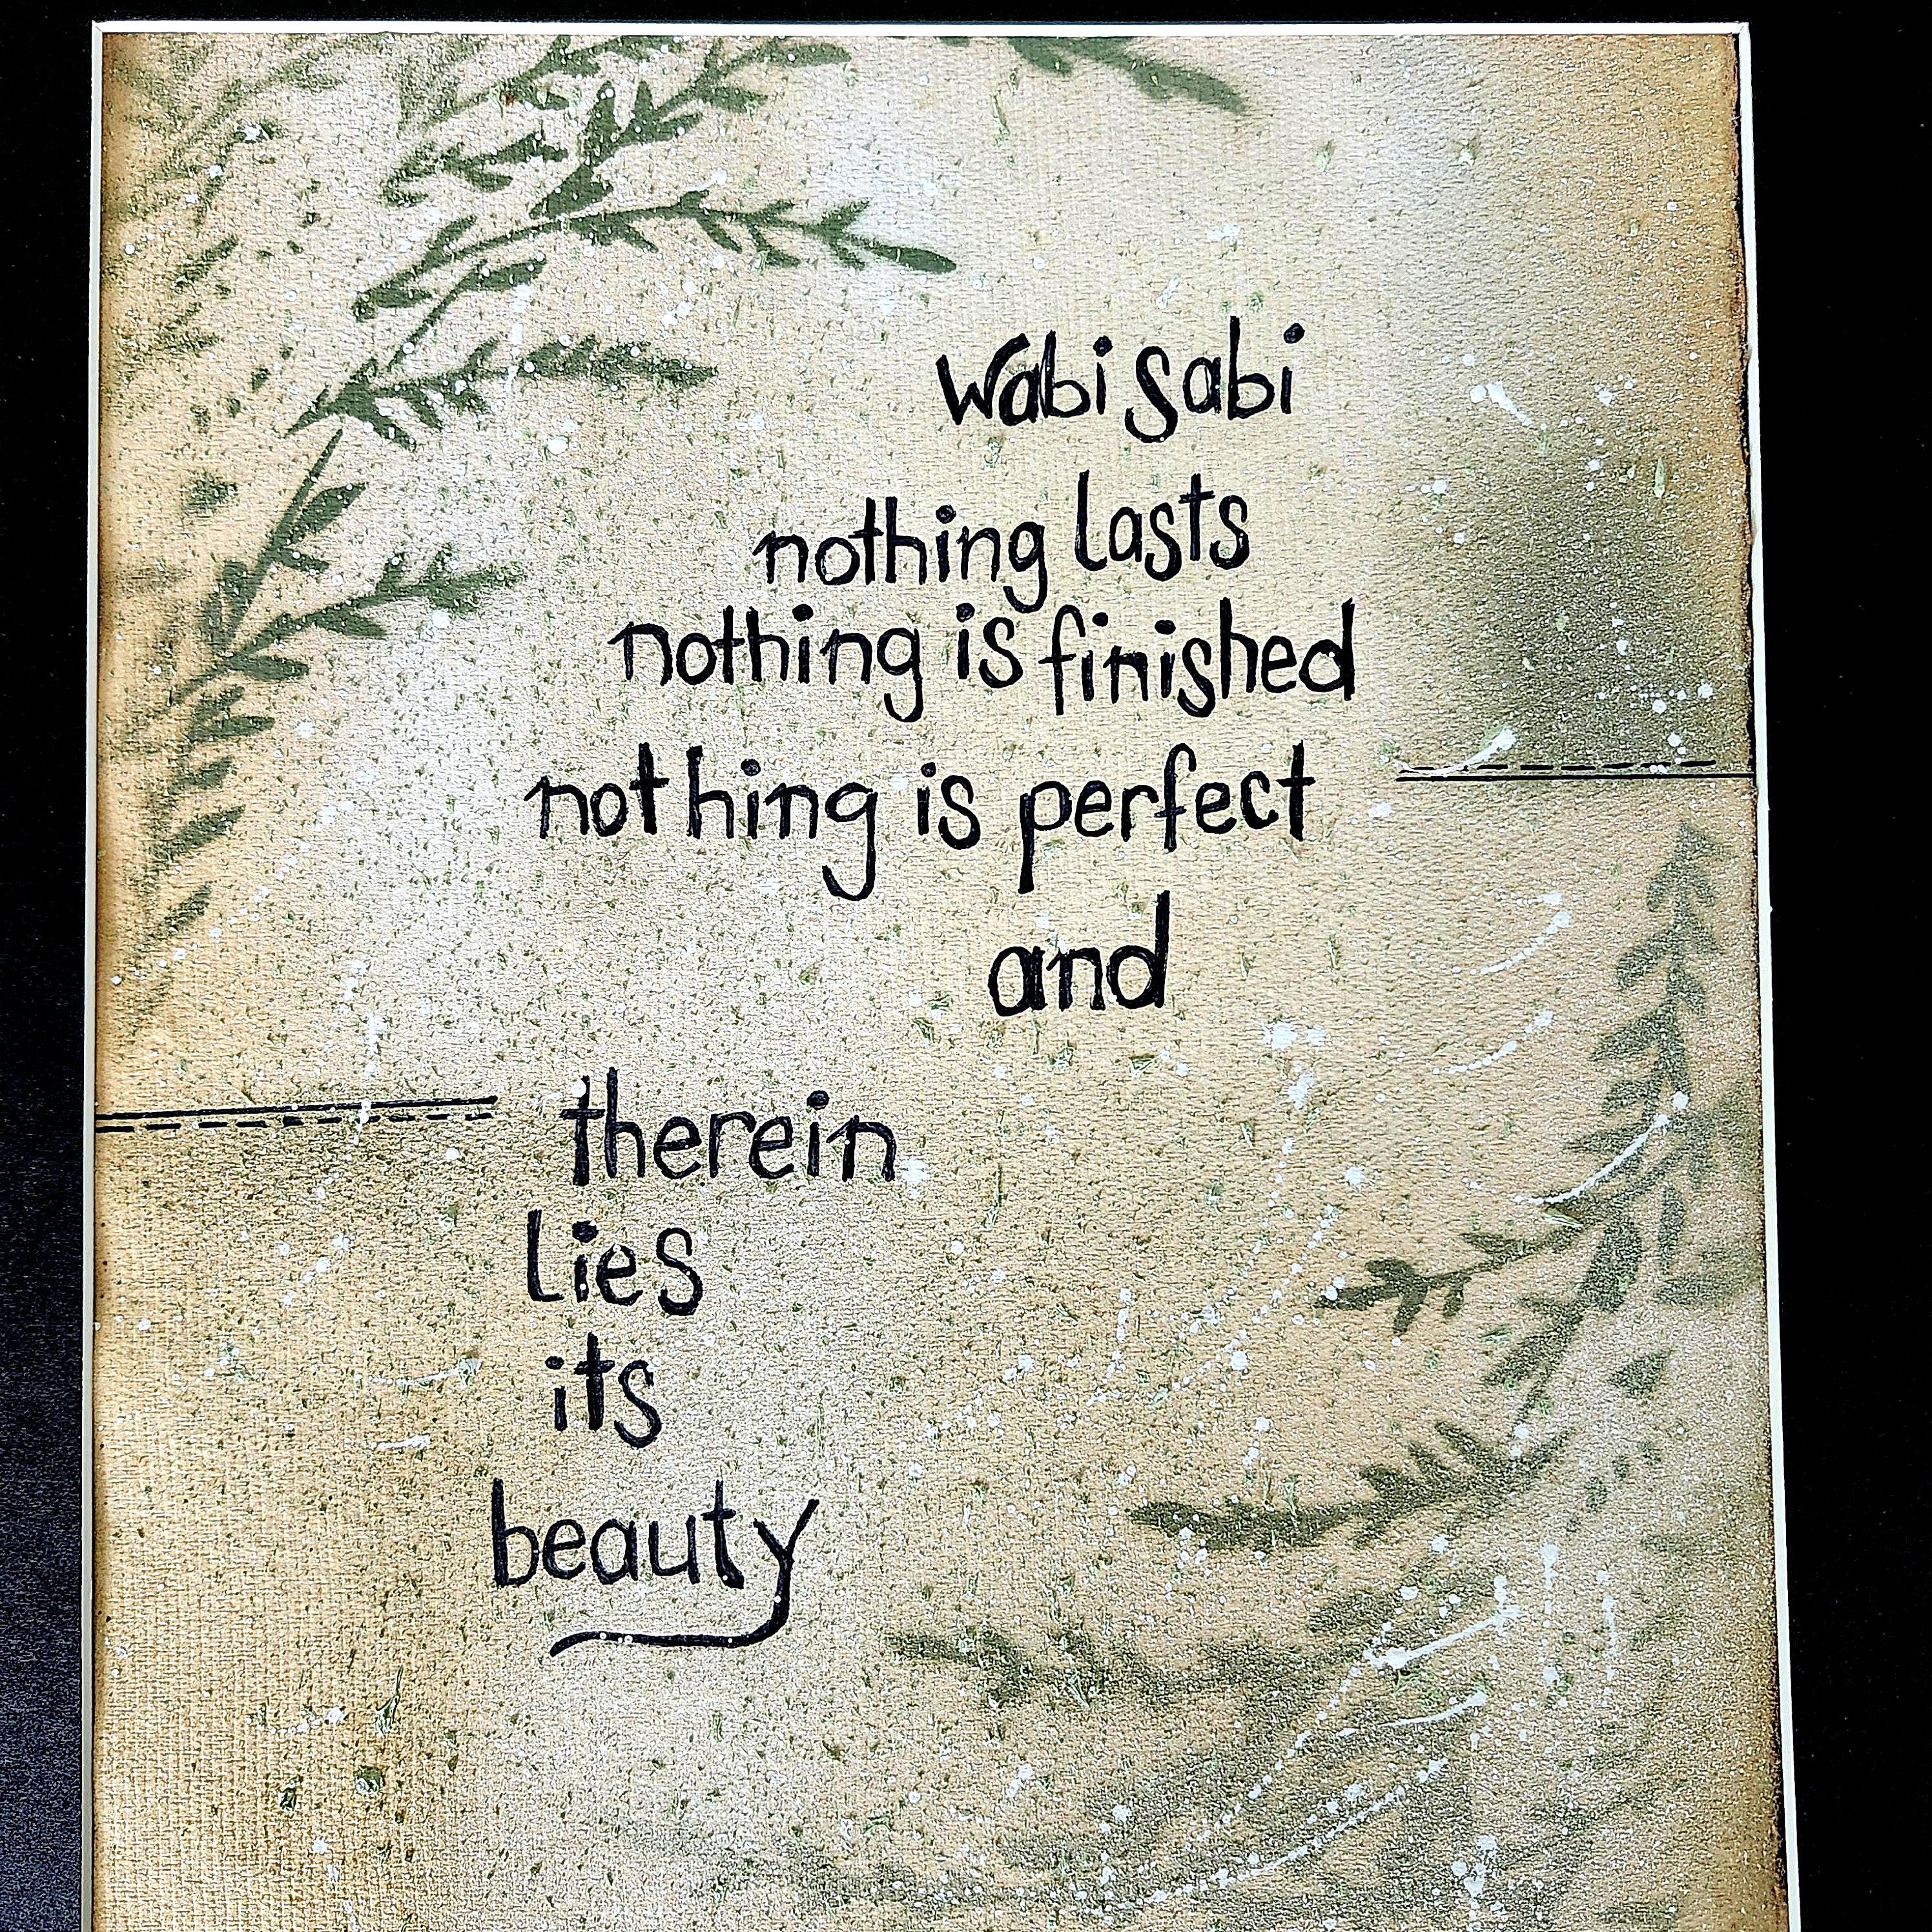 wabi sabi
nothing lasts
nothing is finished
nothing is perfect
and
therein
lies
its
beauty